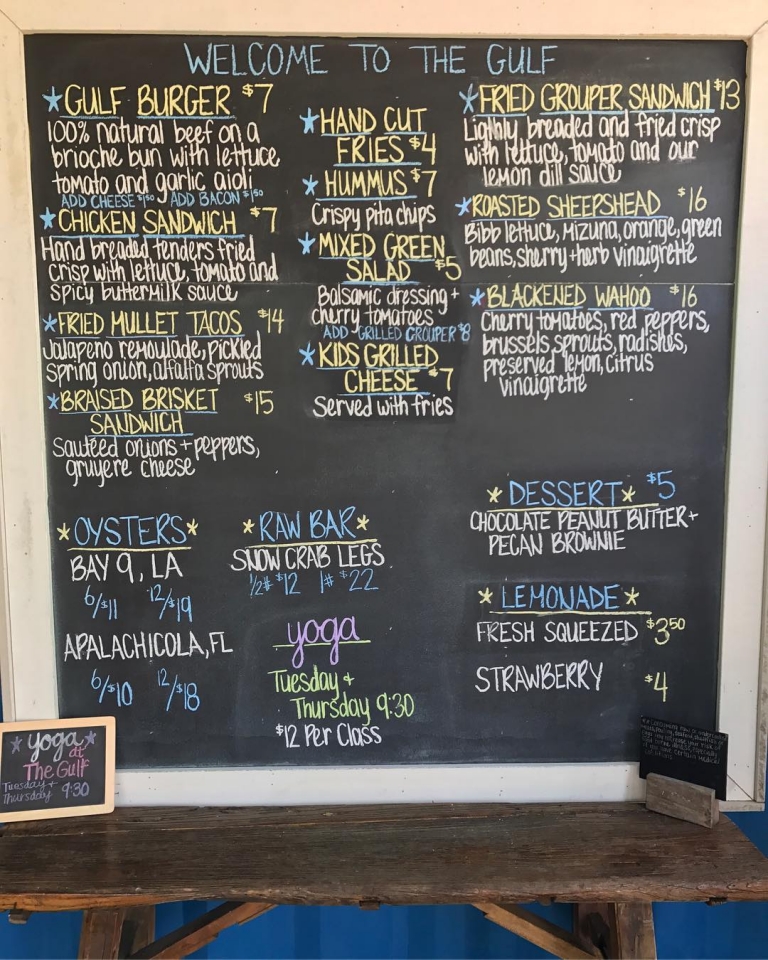 WELCOME TO THE GULF
★GULF BURGER $7
100% natural beef on a
brioche bun with lettuce,
tomato and garlic aioli
ADD CHEESE $1.50 ADD BACON $1.50
★CHICKEN SANDWICH $7
Hand breaded tenders fried
crisp with lettuce, tomato and
spicy buttermilk sauce
★FRIED MULLET TACOS $14
Jalapeno remoulade, pickled
spring onion, alfalfa sprouts
★BRAISED BRISKET $15
SANDWICH
Sautéed onions + peppers,
gruyere cheese
★HAND CUT
FRIES $4
★HUMMUS $7
Crispy pita chips
★MIXED GREEN
SALAD $5
Balsamic dressing +
cherry tomatoes
ADD GRILLED GROUPER $8
★KIDS GRILLED
CHEESE $7
Served with fries
★FRIED GROUPER SANDWICH $13
Lighly breaded and fried crisp
with lettuce, tomato and our
lemon dill sauce
★ROASTED SHEEPSHEAD $16
Bibb lettuce, Mizuna, orange, green
beans, sherry + herb vinaigrette
★BLACKENED WAHOO $16
Cherry tomatoes, red peppers,
brussels sprouts, radishes,
preserved lemon, citrus
vinaigrette
★OYSTERS★
BAY 9, LA
6/$11 12/$19
APALACHICOLA, FL
6/$10 12/$18
★RAW BAR★
SNOW CRAB LEGS
1/2# $12 1# $22
yoga
Tuesday +
Thursday 9:30
$12 Per Class
★DESSERT★ $5
CHOCOLATE PEANUT BUTTER +
PECAN BROWNIE
★LEMONADE★
FRESH SQUEEZED $3.50
STRAWBERRY $4
★yoga★
at
The Gulf
Tuesday +
Thursday 9:30